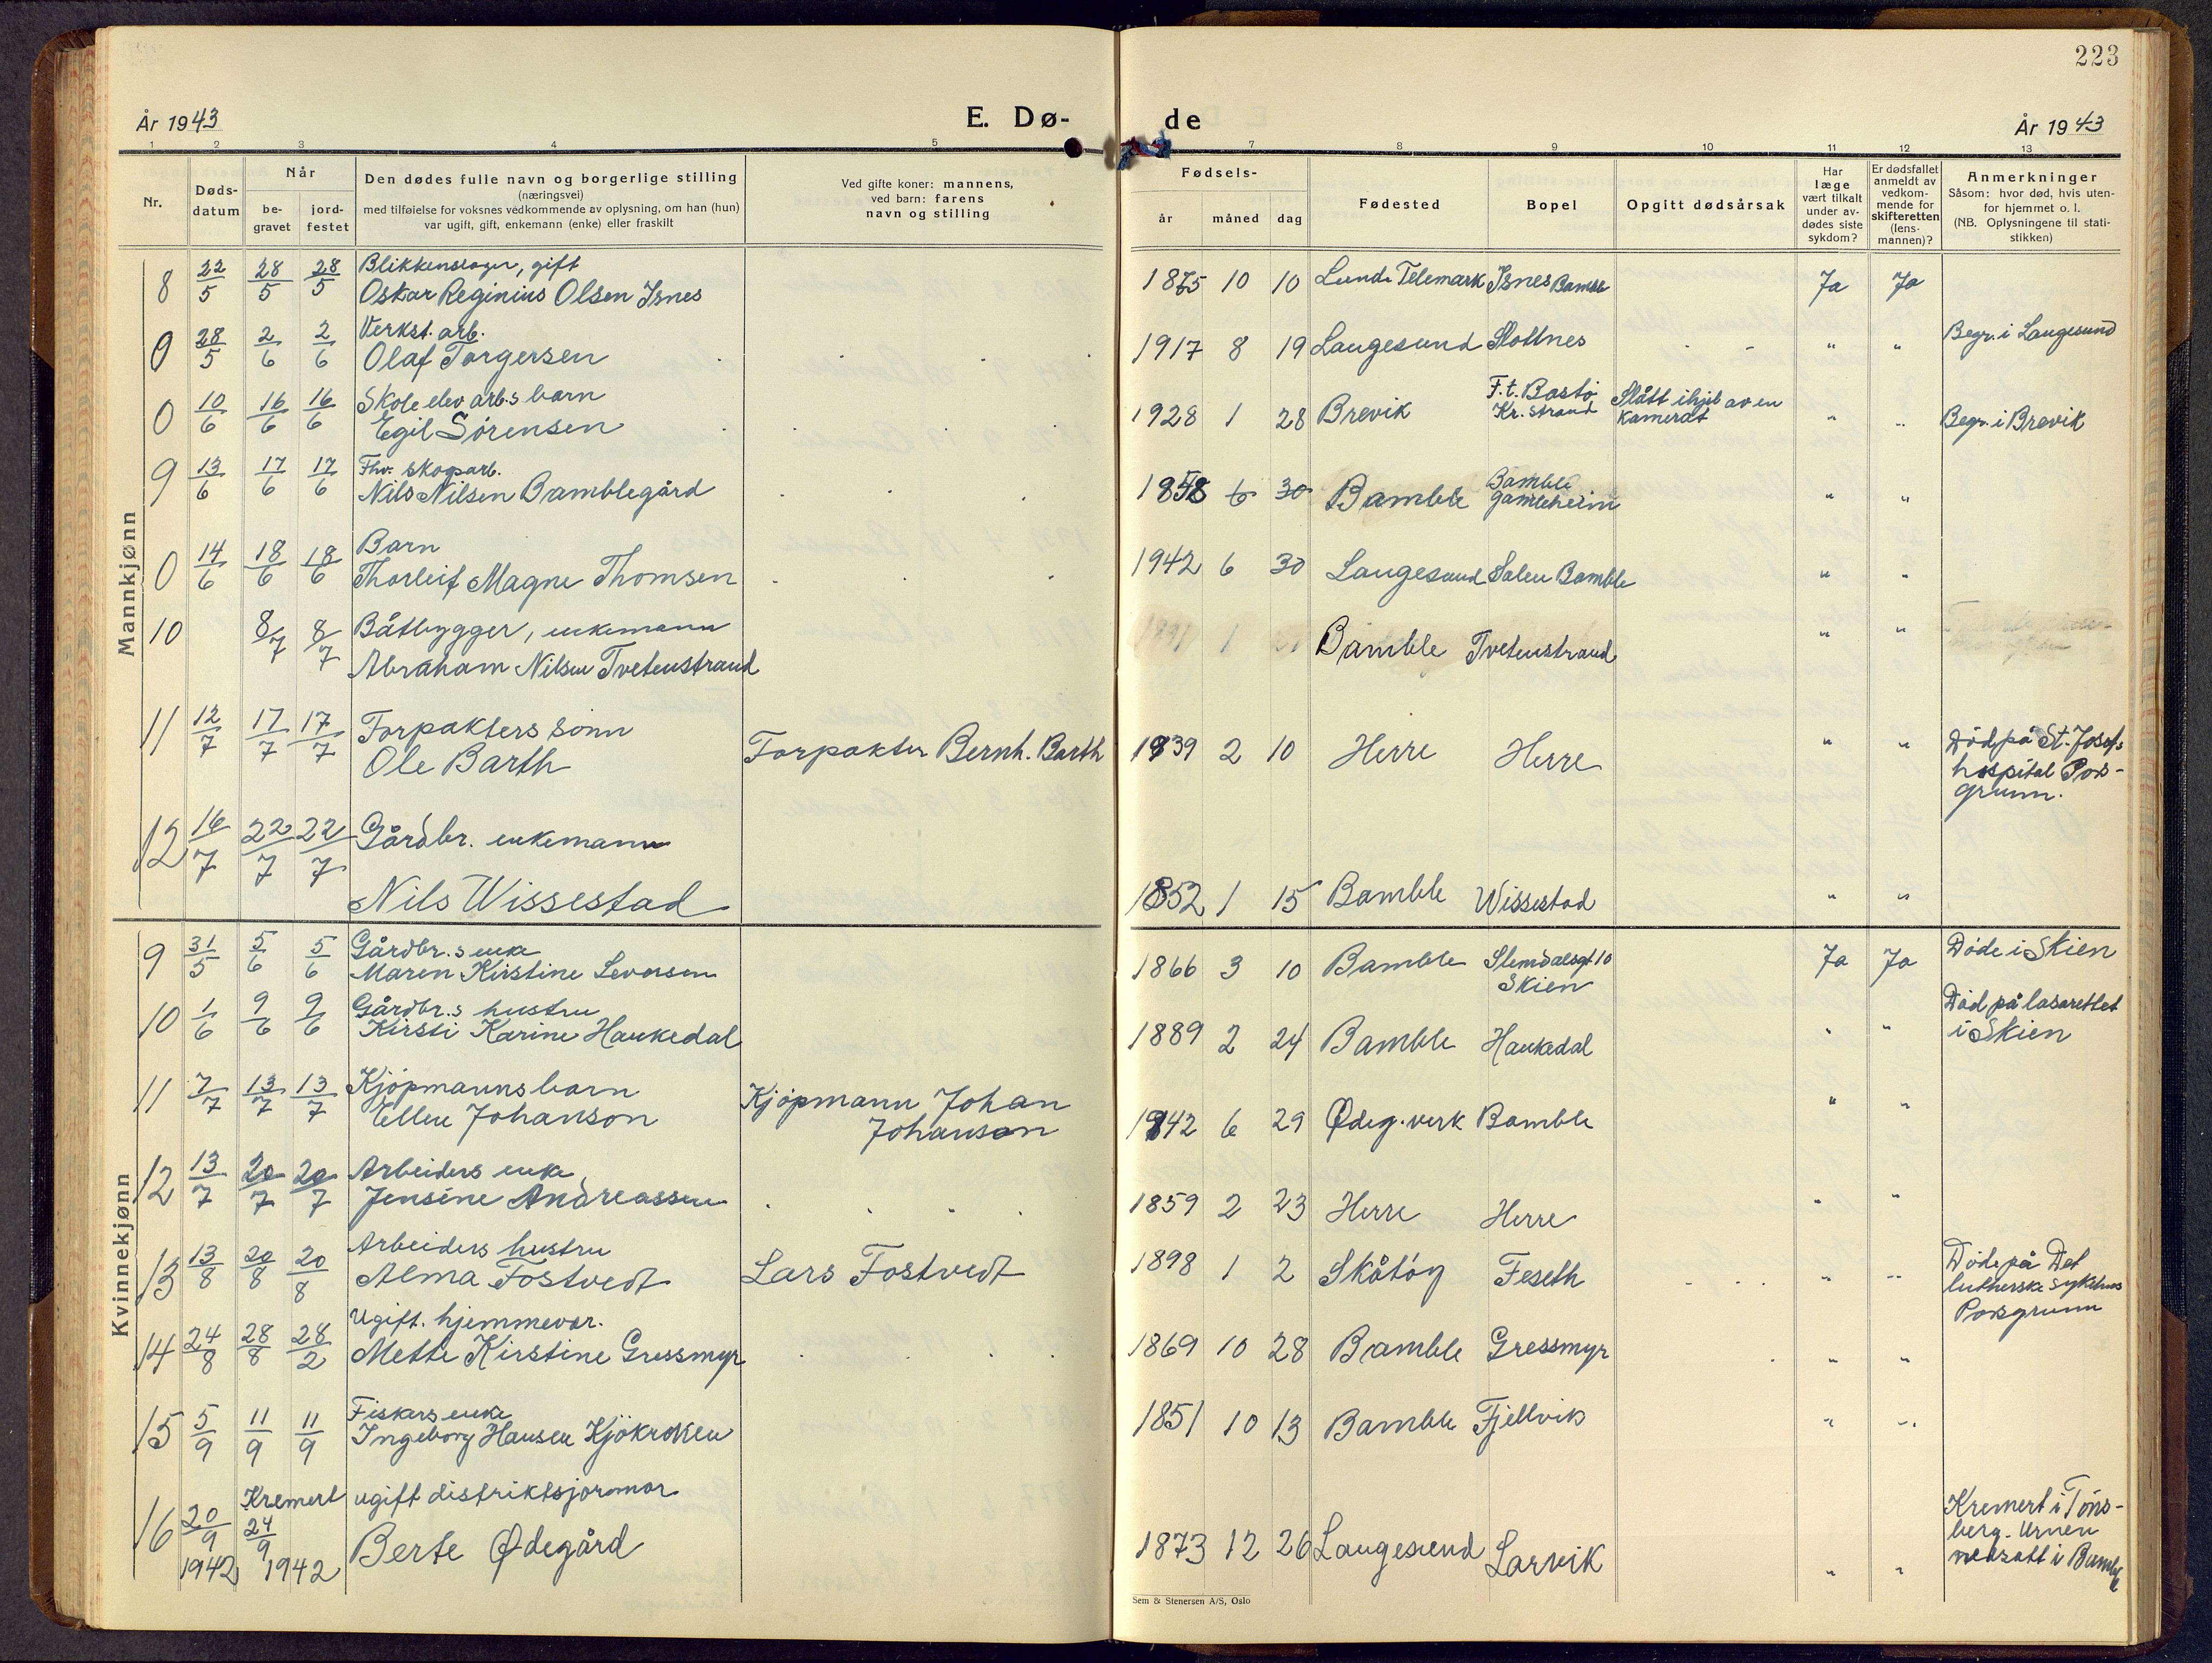 223
År 1943 E. Dø- de År 1943
1 2 3 4 5 7 8 9 10 11 12 13
Nr.
Døds-
datum
Når
be-
gravet
jord-
festet
Den dødes fulle navn og borgerlige stilling
(næringsvei)
med tilføielse for voksnes vedkommende av oplysning, om han (hun)
var ugift, gift, enkemann (enke) eller fraskilt
Ved gifte koner: mannens,
ved barn: farens
navn og stilling
Fødsels-
år måned dag
Fødested
Bopel
Opgitt dødsårsak
Har
læge
vært tilkalt
under av-
dødes siste
sykdom?
Er dødsfallet
anmeldt av
vedkom-
mende for
skifteretten
(lens-
mannen)?
Anmerkninger
Såsom: hvor død, hvis uten-
for hjemmet o. l.
(NB. Oplysningene til stati-
stikken)
Mannkjønn
8 22/5 28/5 28/5 Blikkenslager, gift
Oskar Reginius Olsen Isnes 1875 10 10 Lunde Telemark Isnes Bamble Ja Ja
0 28/5 2/6 2/6 Verkst. arb.
Olaf Torgersen 1917 8 19 Langesund Slottnes " " Begr. i Langesund
0 10/6 16/6 16/6 Skoleelev arb.s barn
Egil Sørensen 1928 1 28 Brevik F.t. Bastø
Kr. strand Slått ihjel av en
kamerat " " Begr. i Brevik
9 13/6 17/6 17/6 Fhv. skogsarb.
Nils Nilsen Bamblegård 1858 6 30 Bamble Bamble
gamleheim " "
0 14/6 18/6 18/6 Barn
Thorleif Magne Thomsen 1942 6 30 Langesund Salen Bamble " "
10 8/7 8/7 Båtbygger, enkemann
Abraham Nilsen Tvetenstrand Bamble Tvetenstrand " "
11 12/7 17/7 17/7 Forpakters sønn
Ole Barth Forpakter Bernh. Barth 1939 2 10 Herre Herre " " Død på St. Josefs
hospital Pors-
grunn.
12 16/7 22/7 22/7 Gårdbr. enkemann
Nils Wissestad 1852 1 15 Bamble Wissestad " "
Kvinnekjønn
9 31/5 5/6 5/6 Gårdbr.s enke
Maren Kirstine Levorsen 1866 3 10 Bamble Slemdalsgt 10
Skien Ja Ja Døde i Skien
10 1/6 9/6 9/6 Gårdbr.s hustru
Kirsti Karine Haukedal 1889 2 24 Bamble Haukedal " " Død på lasarettet
i Skien
11 7/7 13/7 13/7 Kjøpmanns barn
Ellen Johanson Kjøpmann Johan
Johanson 1942 6 29 Ødeg. verk Bamble " "
12 13/7 20/7 20/7 Arbeiders enke
Jensine Andreassen 1859 2 23 Herre Herre " "
13 13/8 20/8 20/8 Arbeiders hustru
Alma Fostvedt Lars Fostvedt 1898 1 2 Skåtøy Feseth " " Døde på Det
lutherske sykehus
Porsgrunn
14 24/8 28/8 28/2 Ugift. hjemmevær.
Mette Kirstine Gressmyr 1869 10 28 Bamble Gressmyr " "
15 5/9 11/9 11/9 Fiskers enke
Ingeborg Hansen Kjøkroken 1851 10 13 Bamble Fjellvik " "
16 20/9 1942 Kremert 24/9 1942 ugift distriktsjormor
Berte Ødegård 1873 12 26 Langesund Larvik " " Kremert i Tøns-
berg. Urnen
nedsatt i Bamble
Sem & Stenersen A/S, Oslo